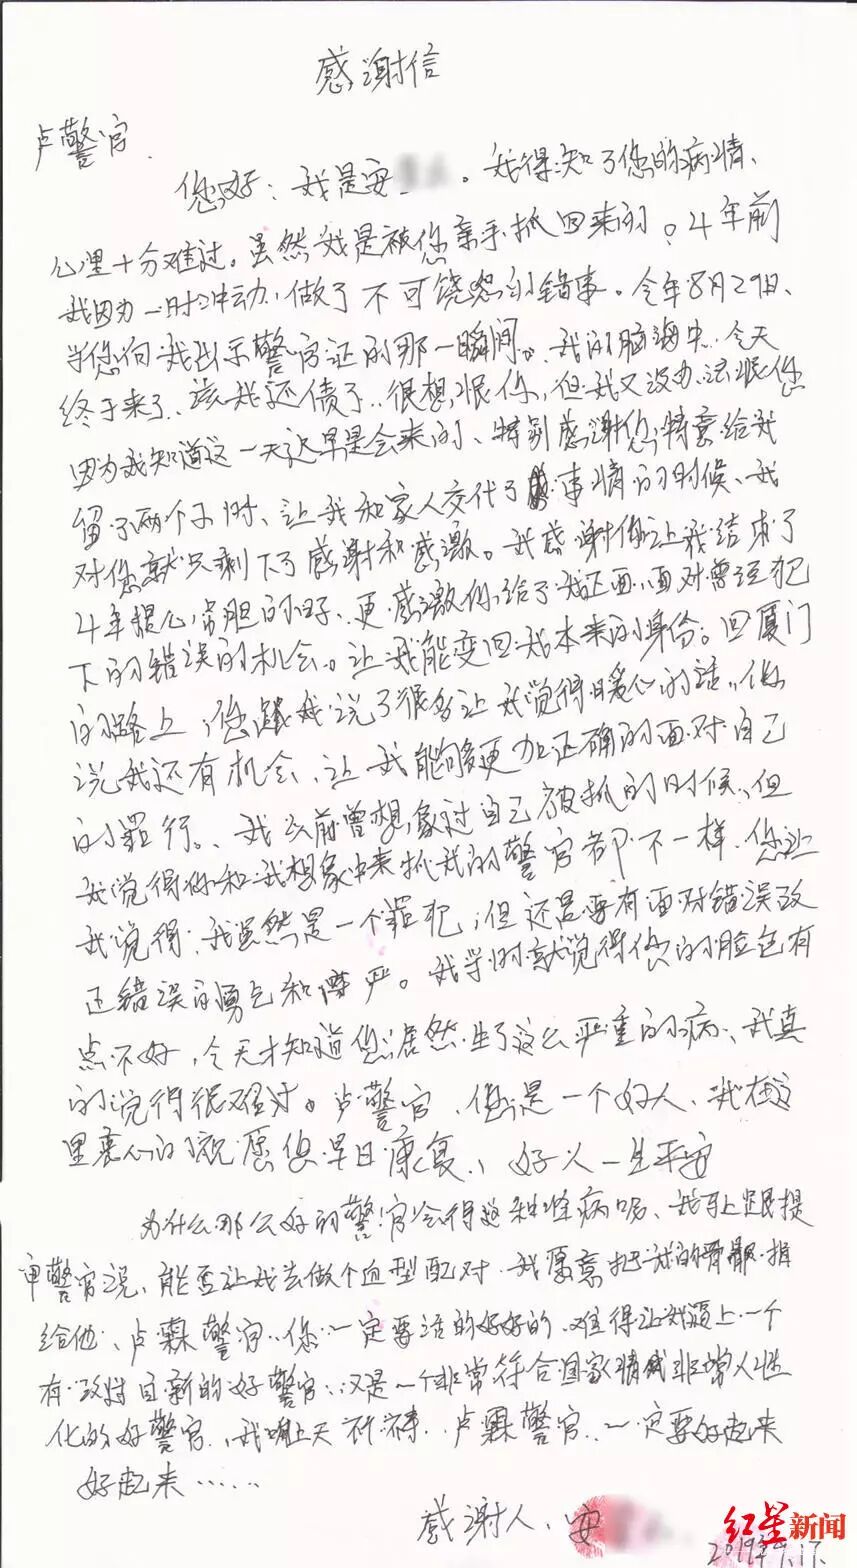 感谢信
卢警官.
您好：我是安 。我得知了您的病情、
心里十分难过。虽然我是被您亲手抓回来的。4年前
我因为一时冲动，做了不可饶恕的错事。今年8月29日、
当您向我出示警官证的那一瞬间。我的脑海中、今天
终于来了、该我还债了..很想恨你，但我又没办法恨您
因为我知道这一天迟早是会来的、特别感谢您特意给我
留了两个小时、让我和家人交代了事情的时候、我
对您就只剩下了感谢和感激。我感谢你让我结束了
4年提心吊胆的日子、更感激你给了我正面，面对曾经犯
下的错误的机会。让我能变回我本来的身份。回厦门
的路上，您跟我说了很多让我觉得暖心的话，你
说我还有机会、让我能够更加正确的面对自己
的罪行。、我以前曾想象过自己被抓的时候，但
我觉得你和我想象中来抓我的警官都不一样、您让
我觉得，我虽然是一个罪犯，但还是要有面对错误改
正错误的勇气和尊严。我当时就觉得你的脸色有
点不好，今天才知道您居然生了这么严重的病、我真
的觉得很难过。卢警官、您是一个好人、我在这
里衷心的祝愿您早日康复、好人一生平安
为什么那么好的警官会得这种怪病呢、我马上跟提
审警官说、能否让我去做个血型配对、我愿意把我的骨髓捐
给他、卢霖警官、你一定要活的好好的、难得让我遇上一个
有 自新的好警官、又是一个非常符合国家 非常人性
化的好警官、我 上天祈祷、卢霖警官、一定要好起来
好起来……
感谢人、安
2019年9.17.
红星新闻